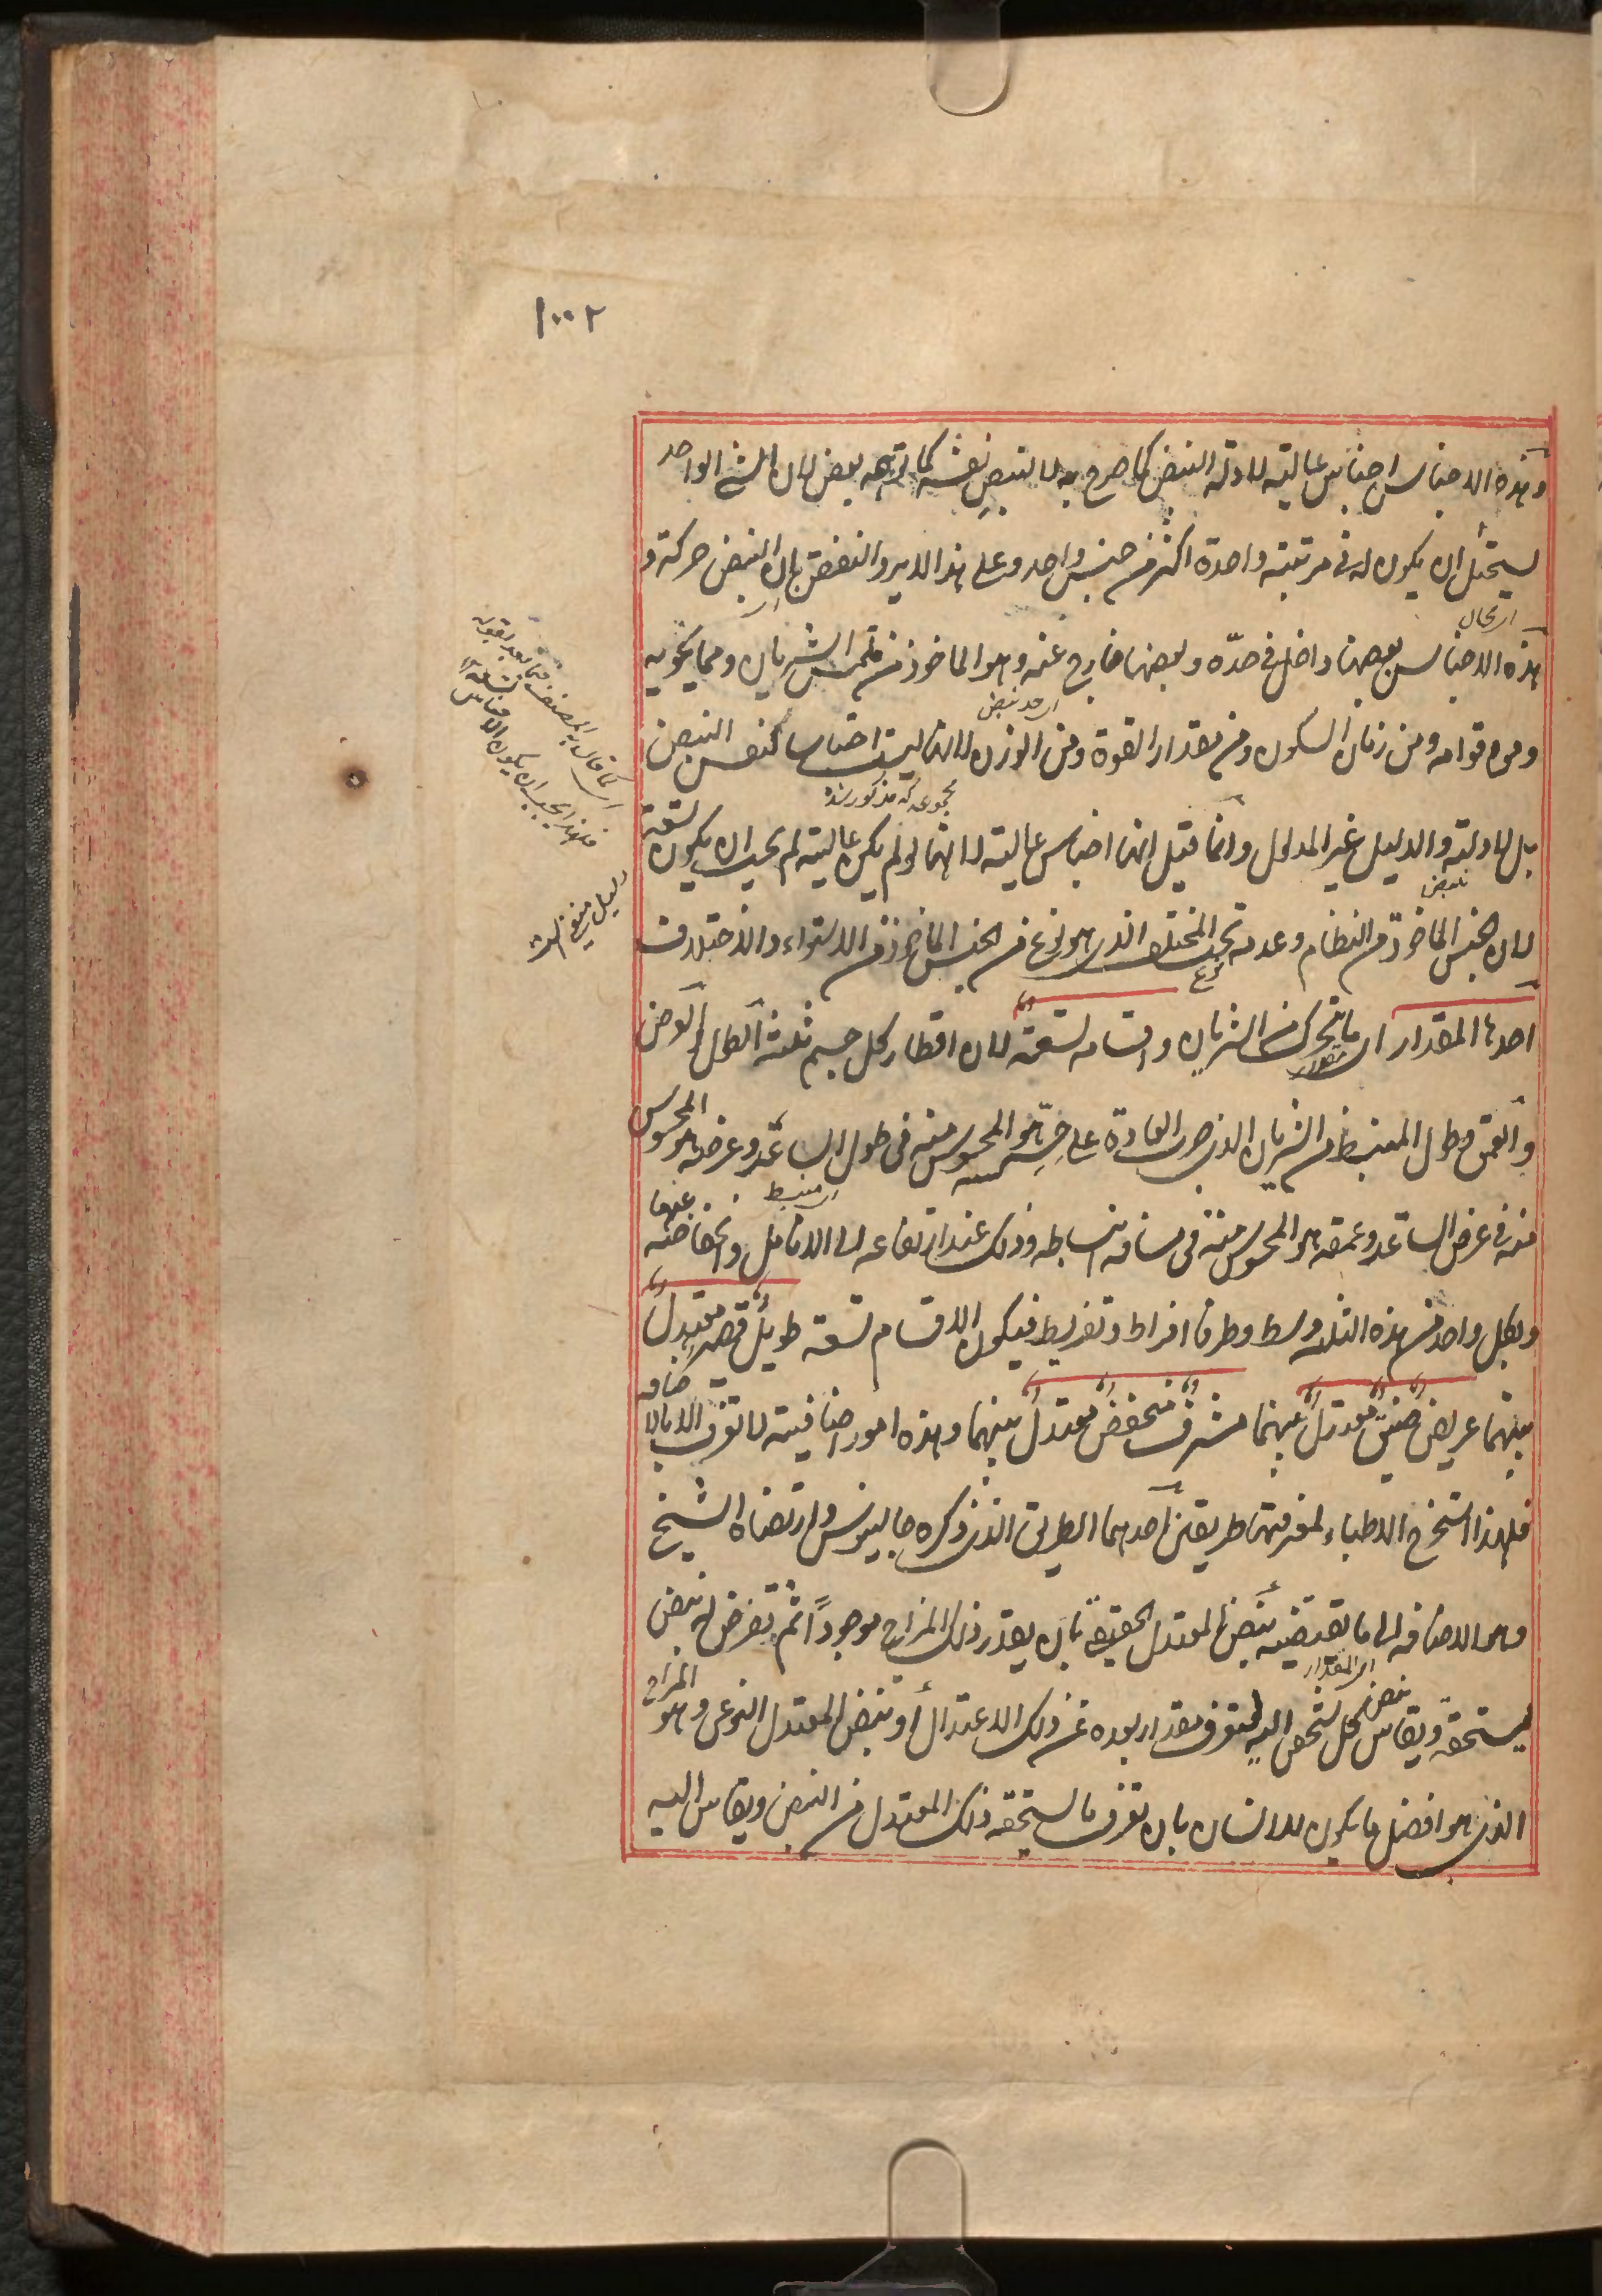 ١٠٠٢
وهذه الاجناس اجناس عالية لادلة النبض كما صرح به لا للنبض نفسه كما توهمه بعض لان الشئ الواحد
يستحيل ان يكون له فى مرتبة واحدة اكثر من جنس واحد وعلى هذا لا يرد النقض بان النبض حركة و
اى كمال
هذه الاجناس بعضها داخل فى حدّه وبعضها خارج عنه وهو الماخوذ من ملمس الشريان ومما يحويه
اى حد نبض
ومن قوامه ومن زمان السكون ومن مقدار القوة ومن الوزن لانها ليست اجناسا لنفس النبض
مجموعه كه مذكور شد
بل لادلته والدليل غير المدلول وانما قيل انها اجناس عالية لانها لو لم يكن عالية لم يجب ان يكون تسعة
نبض
لان الجنس الماخوذ من النظام وعدمه تحت المختلف الذى هو نوع من الجنس الماخوذ من الاستواء والاختلاف
نوع
احدها المقدار اى ما يتحرك من الشريان واقسامه تسعة لان اقطار كل جسم ثلثة الطول والعرض
مقدار
والعمق وطول المنبسط من الشريان الذى جرت العادة على جسّه هو المحسوس منه فى طول الساعد وعرضه هو المحسوس
اى منبسط
منه فى عرض الساعد وعمقه هو المحسوس منه فى مسافة انبساطه وذلك عند ارتفاعه الى الانامل وانخفاضه عنها
ولكل واحد من هذه الثلثة وسط وطرفا افراط وتفريط فيكون الاقسام تسعة طويل قصير معتدل
بينهما عريض ضيق معتدل بينهما مشرف منخفض معتدل بينهما وهذه امور اضافية لا تعرف الا بالاضافة
فلهذا استخرج الاطباء لمعرفتها طريقين احدهما الطريق الذى ذكره جالينوس وارتضاه الشيخ
وهى الاضافة الى ما يقتضيه نبض المعتدل الحقيقى بان يقدر ذلك المزاج موجودًا ثم تفرض له نبض
اى المقدار
يستحقه ويقاس نبض كل شخص اليه ليعرف مقدار بعده عن ذلك الاعتدال أو نبض المعتدل النوعى وهو المزاج
الذى هو افضل ما يكون للانسان بان تعرف ما يستحقه ذلك المعتدل من النبض ويقاس اليه
اى كما قال المصنف فيما بعد بقوله
فلهذا يجب ان يكون الاجناس تسعة